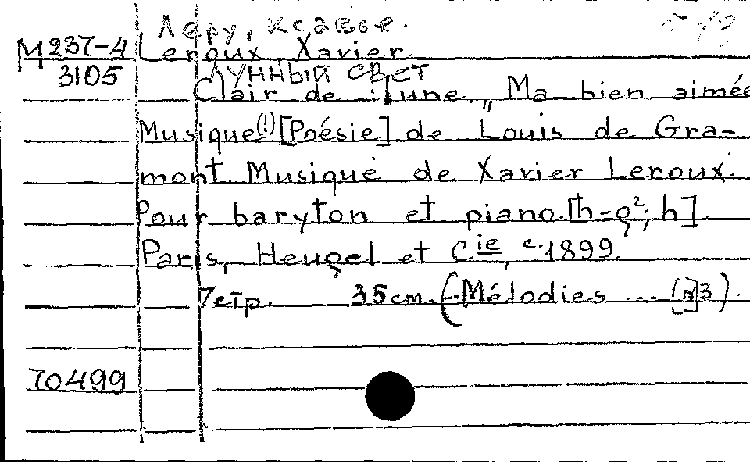 Леру, Ксавье.
М 237-4 Leroux, Xavier.
3105 Лунный свет
Clair de lune. „Ma bien aimée
Musique(!) [Poésie] de Louis de Gra-
mont Musique de Xavier Leroux.
Pour baryton et piano. [h-g²; h].
Paris, Heugel et Cie, c. 1899.
7 стр. 35 cm. (Mélodies ... [n]3).
70499